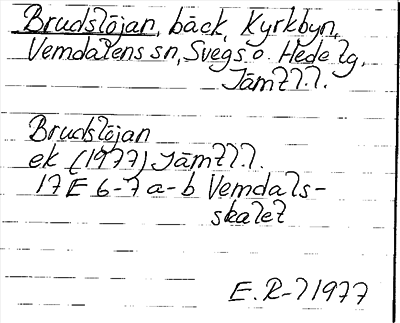 Brudslöjan, bäck, Kyrkbyn,
Vemdalens sn, Svegs o. Hede lg,
Jämtl.l.
Brudslöjan
ek (1977) Jämtl.l.
17E 6-7 a-b Vemdals-
skalet
E. R-l 1977